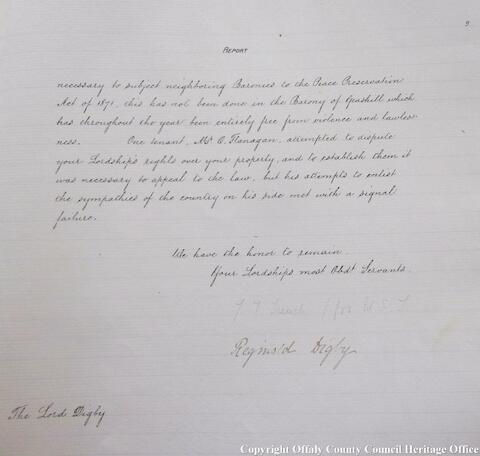 9
REPORT
necessary to subject neighboring Baronies to the Peace Preservation
Act of 1871, this has not been done in the Barony of Geashill which
has throughout the year been entirely free from violence and lawless-
ness. One tenant, Mr. O. Flanagan, attempted to dispute
your Lordship's rights over your property, and to establish them it
was necessary to appeal to the law, but his attempts to enlist
the sympathies of the country on his side met with a signal
failure.
We have the honor to remain
Your Lordships most Obdt. Servants
Trench (for W. S. T.
Reginald Digby
The Lord Digby
Copyright Offaly County Council Heritage Office